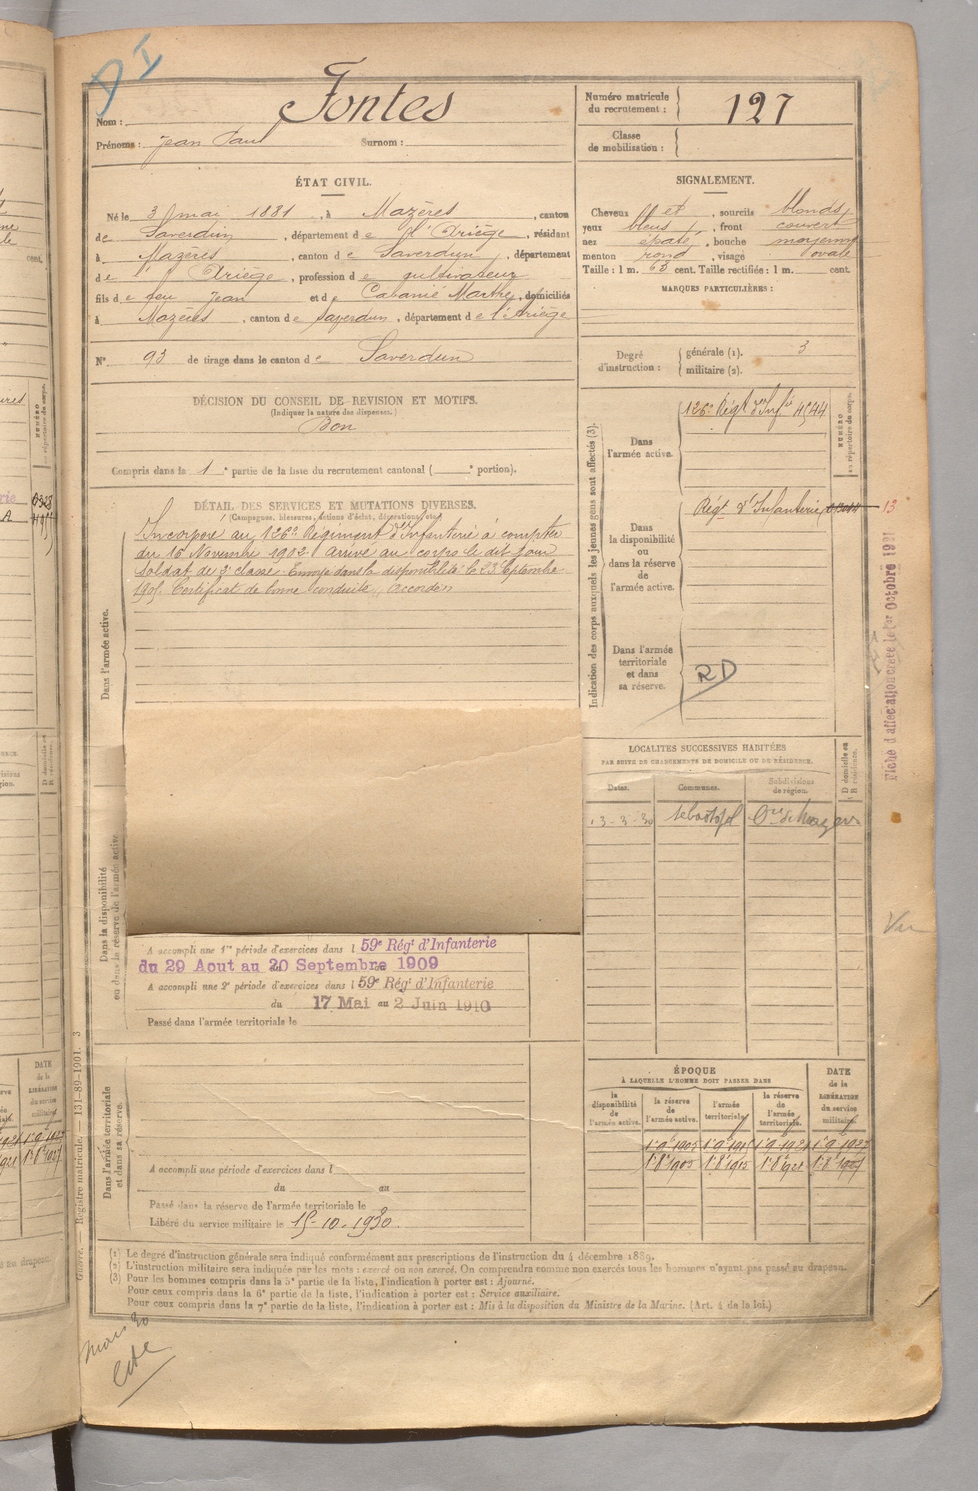 D I
Nom : Fontes
Prénoms : Jean Paul Surnom :
Numéro matricule du recrutement : 127
Classe de mobilisation :
ÉTAT CIVIL.
Né le 3 mai 1881, à Mazères, canton
de Saverdun, département de l'Ariège, résidant
à Mazères, canton de Saverdun, département
de l'Ariège, profession de cultivateur
fils de feu Jean et de Cabanié Marthe, domiciliés
à Mazères, canton de Saverdun, département de l'Ariège
N° 93 de tirage dans le canton de Saverdun
SIGNALEMENT.
Cheveux, sourcils blonds
yeux bleus, front couvert
nez épaté, bouche moyenne
menton rond, visage ovale
Taille : 1 m. 63 cent. Taille rectifiée : 1 m. cent.
MARQUES PARTICULIÈRES :
Degré d'instruction : générale (1). 3
militaire (2).
DÉCISION DU CONSEIL DE REVISION ET MOTIFS.
(Indiquer la nature des dispenses.)
Bon
Compris dans la 1e partie de la liste du recrutement cantonal ( e portion).
DÉTAIL DES SERVICES ET MUTATIONS DIVERSES.
(Campagnes, blessures, actions d'éclat, décorations, etc.)
Dans l'armée active.
Incorporé au 126e Régiment d'Infanterie à compter
du 16 Novembre 1902 arrivé au corps le dit jour
Soldat de 2e classe. Envoyé dans la disponibilité le 23 Septembre
1905 Certificat de bonne conduite "Accordé"
Dans la disponibilité ou dans la réserve de l'armée active.
A accompli une 1re période d'exercices dans l 59e Régt d'Infanterie
du 29 Aout au 20 Septembre 1909
A accompli une 2e période d'exercices dans l 59e Régt d'Infanterie
du 17 Mai au 2 Juin 1910
Passé dans l'armée territoriale le
Dans l'armée territoriale et dans sa réserve.
A accompli une période d'exercices dans l
du au
Passé dans la réserve de l'armée territoriale le
Libéré du service militaire le 15-10-1930.
Indication des corps auxquels les jeunes gens sont affectés (3).
NUMÉRO au répertoire du corps.
Dans l'armée active.
126e Régt d'Infie 4544
Dans la disponibilité ou dans la réserve de l'armée active.
Régt d'Infanterie 13
Dans l'armée territoriale et dans sa réserve.
RD
Fiche d'affectation créée le 1er Octobre 1921
LOCALITÉS SUCCESSIVES HABITÉES
PAR SUITE DE CHANGEMENTS DE DOMICILE OU DE RÉSIDENCE.
Dates. Communes. Subdivisions de région. D domicile ou R résidence.
13-3-30 Sebastopol
Vu
ÉPOQUE
À LAQUELLE L'HOMME DOIT PASSER DANS
DATE de la LIBÉRATION du service militaire.
la disponibilité de l'armée active. la réserve de l'armée active. l'armée territoriale. la réserve de l'armée territoriale.
(1) Le degré d'instruction générale sera indiqué conformément aux prescriptions de l'instruction du 4 décembre 1889.
(2) L'instruction militaire sera indiquée par les mots : exercé ou non exercé. On comprendra comme non exercés tous les hommes n'ayant pas passé au drapeau.
(3) Pour les hommes compris dans la 5e partie de la liste, l'indication à porter est : Ajourné.
Pour ceux compris dans la 6e partie de la liste, l'indication à porter est : Service auxiliaire.
Pour ceux compris dans la 7e partie de la liste, l'indication à porter est : Mis à la disposition du Ministre de la Marine. (Art. 4 de la loi.)
Guerre. — Registre matricule. — 131-89-1901. 3
mars 30